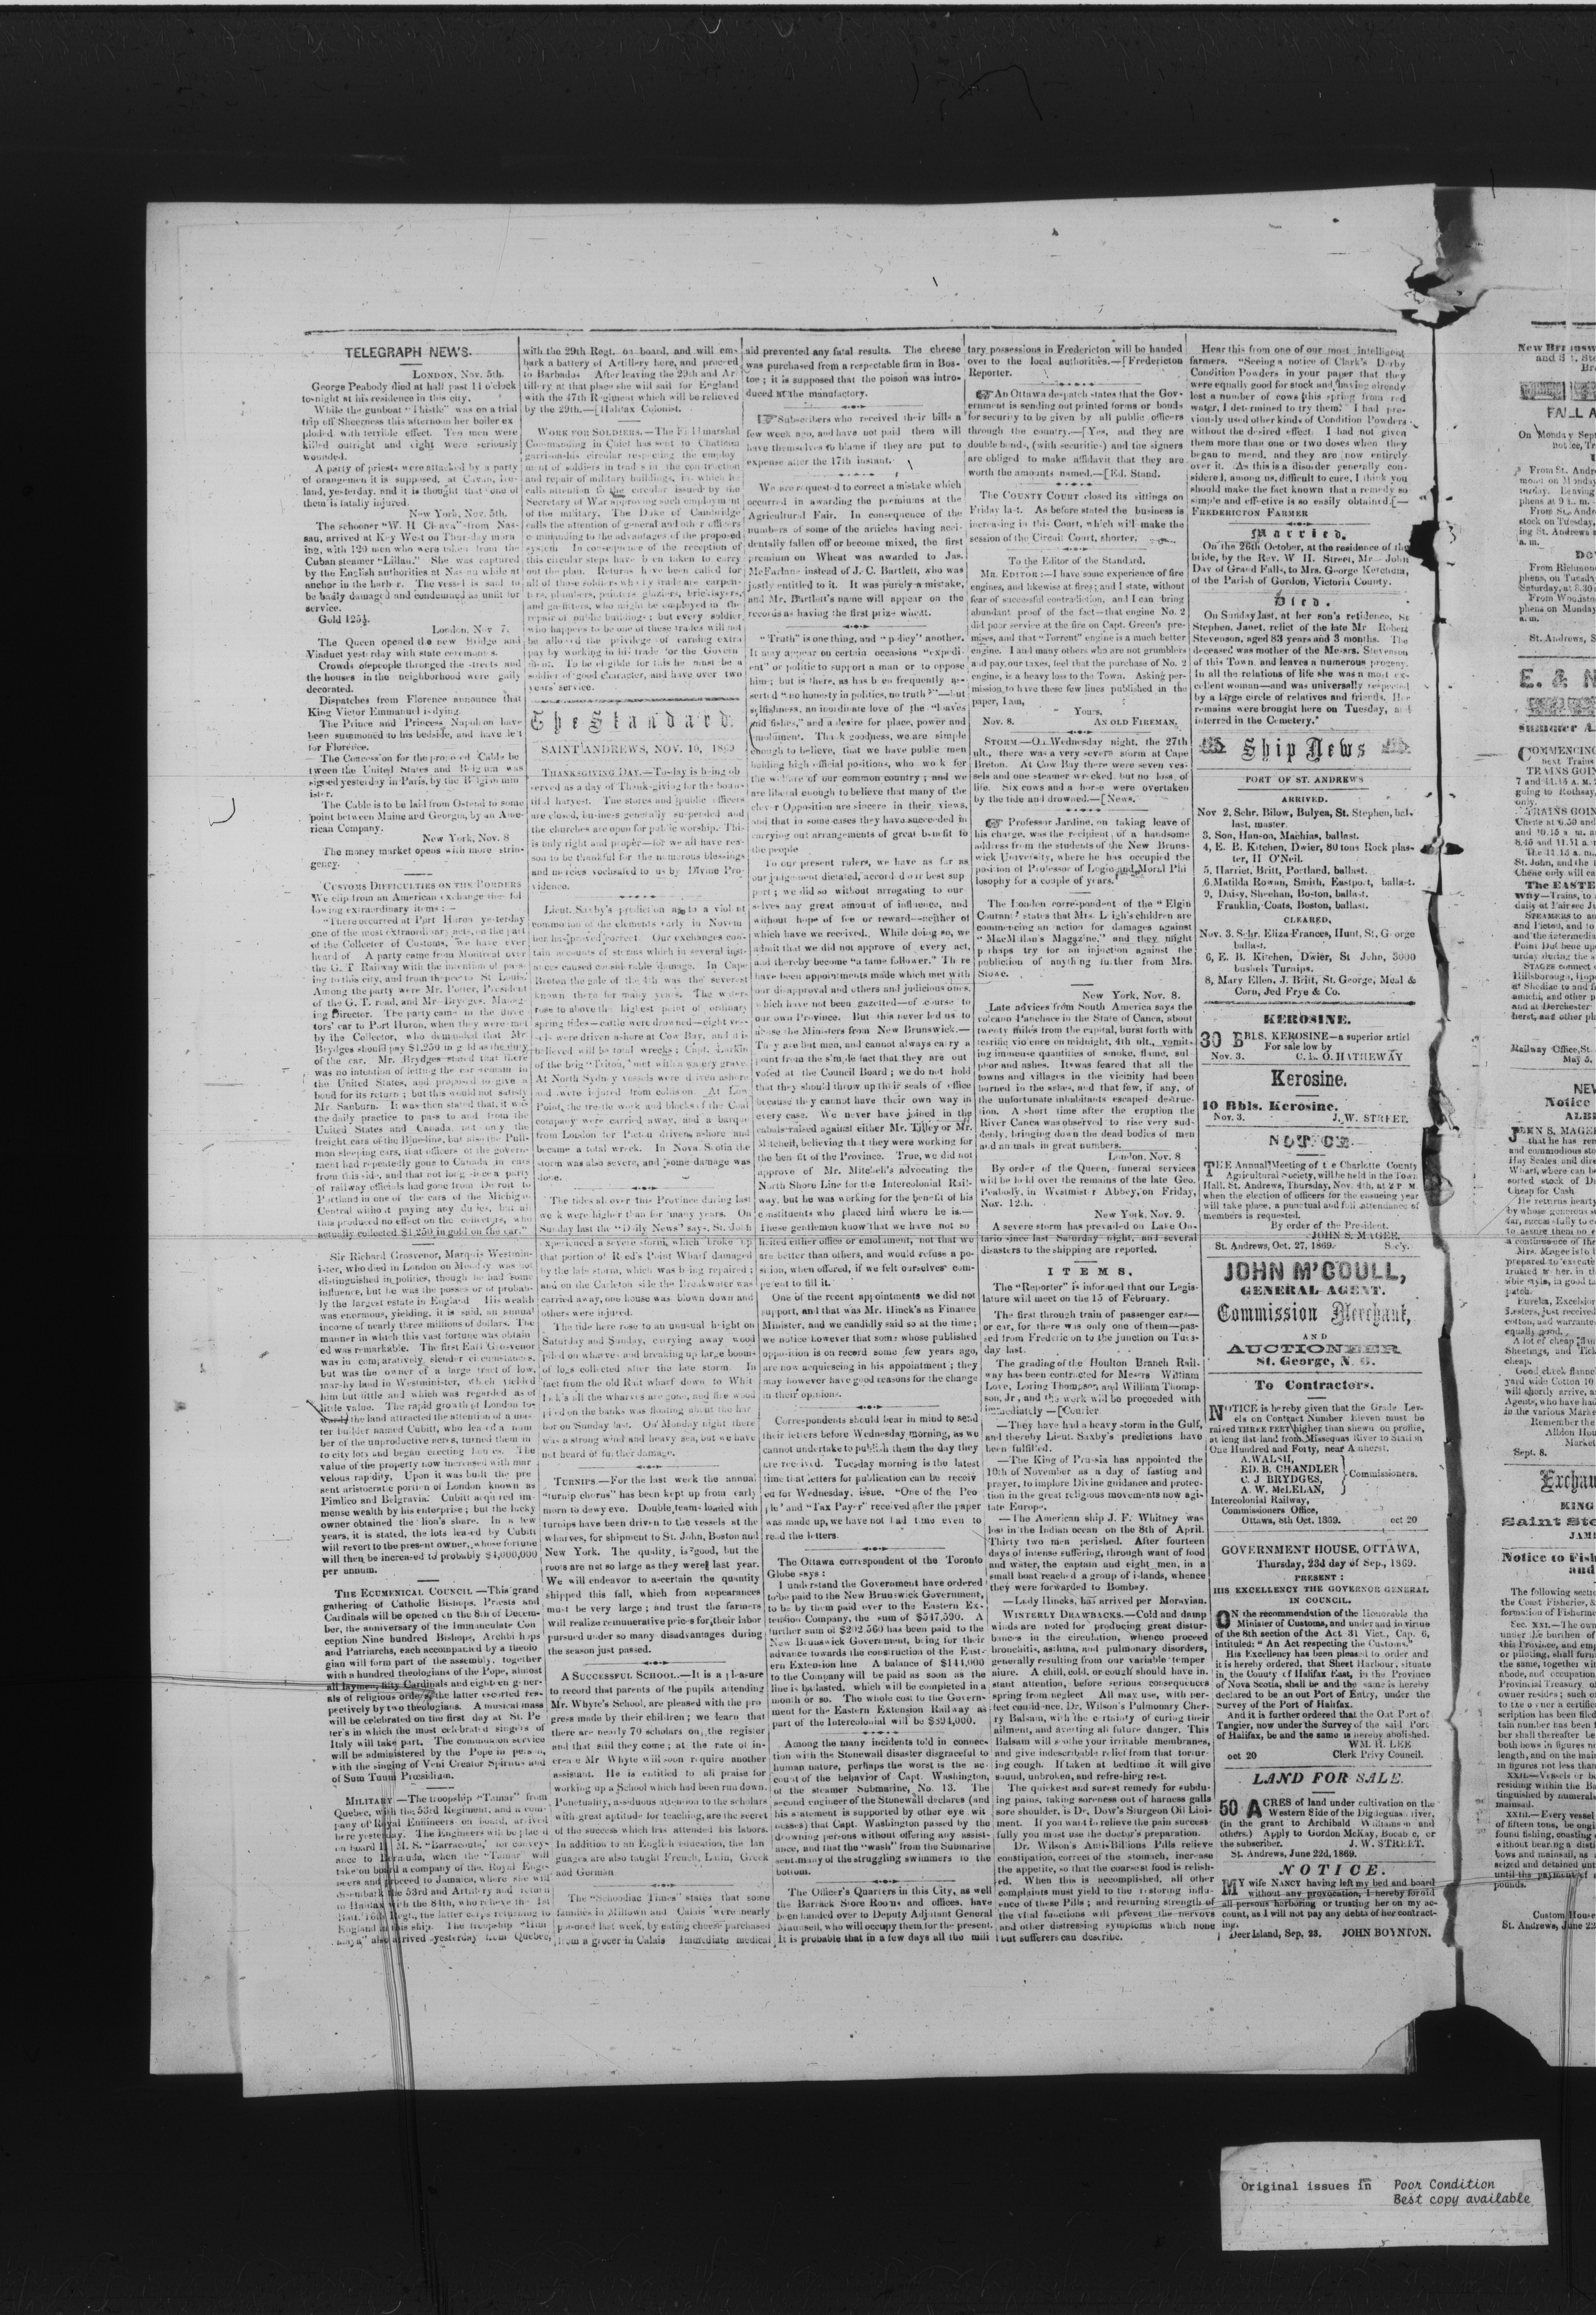 TELEGRAPH NEWS.
LONDON, Nov. 5th.
George Peabody died at half past 11 o'clock
to-night at his residence in this city.
While the gunboat "Thistle" was on a trial
trip off Sheerness this afternoon her boiler ex
ploded with terrible effect. Ten men were
killed outright and eight were seriously
wounded.
A party of priests were attacked by a party
of orangemen it is supposed, at Cavan, Ire-
land, yesterday, and it is thought that one of
them is fatally injured.
New York, Nov. 5th.
sau, arrived at Key West on Thursday morn
ing, with 120 men who were taken from the
Cuban steamer "Lillan." She was captured
by the English authorities at Nassau while at
anchor in the harbor. The vessel is said to
be badly damaged and condemned as unfit for
service.
Gold 125½.
London, Nov 7.
The Queen opened the new Bridge and
Viaduct yesterday with state ceremonies.
Crowds of people thronged the streets and
the houses in the neighborhood were gaily
decorated.
Dispatches from Florence announce that
King Victor Emmanuel is dying.
The Prince and Princess Napoleon have
been summoned to his bedside, and have left
for Florence.
The Concession for the proposed Cable be
tween the United States and Belgium was
signed yesterday in Paris, by the Belgian min
ister.
The Cable is to be laid from Ostend to some
point between Maine and Georgia, by an Ame-
rican Company.
New York, Nov. 8
The money market opens with more strin-
gency.
CUSTOMS DIFFICULTIES ON THE BORDERS
We clip from an American exchange the fol
lowing extraordinary items:—
"There occurred at Port Huron yesterday
one of the most extraordinary acts, on the part
of the Collector of Customs, we have ever
heard of A party came from Montreal over
the G. T Railway with the intention of pass-
ing to this city, and from thence to St Louis.
Among the party were Mr. Potter, President
of the G. T. road, and Mr Brydges, Manag-
ing Director. The party came in the direc
tors' car to Port Huron, when they were met
by the Collector, who demanded that Mr
Brydges should pay $1,250 in gold as the duty
of the car. Mr. Brydges stated that there
was no intention of letting the car remain in
the United States, and proposed to give a
bond for its return; but this would not satisfy
Mr. Sanburn. It was then stated that it was
the daily practice to pass to and from the
United States and Canada, not only the
freight cars of the Blue line, but also the Pull-
man sleeping cars, that officers of the govern-
ment had repeatedly gone to Canada in cars
from this side, and that not long since a party
of railway officials had gone from Detroit to
Portland in one of the cars of the Michigan
Central without paying any duties, but all
this produced no effect on the collectors, who
actually collected $1,250 in gold on the car."
Sir Richard Grosvenor, Marquis Westmin-
ister, who died in London on Monday was not
distinguished in politics, though he had some
influence, but he was the possessor of probab-
ly the largest estate in England His wealth
was enormous, yielding, it is said, an annual
income of nearly three millions of dollars. The
manner in which this vast fortune was obtain
ed was remarkable. The first Earl Grosvenor
was in comparatively slender circumstances,
but was the owner of a large tract of low,
marshy land in Westminister, which yielded
him but little and which was regarded as of
little value. The rapid growth of London to-
wards the land attracted the attention of a mas
ter builder named Cubitt, who leased a num
ber of the unproductive acres, turned them in
to city lots and began erecting houses. The
value of the property now increased with mar
velous rapidity. Upon it was built the pre
sent aristocratic portion of London known as
Pimlico and Belgravia. Cubitt acquired im-
mense wealth by his enterprise; but the lucky
owner obtained the lion's share. In a few
years, it is stated, the lots leased by Cubitt
will revert to the present owner, whose fortune
will then be increased to probably $4,000,000
per annum.
THE ECUMENICAL COUNCIL—This grand
gathering of Catholic Bishops, Priests and
Cardinals will be opened on the 8th of Decem-
ber, the anniversary of the Immaculate Con
ception Nine hundred Bishops, Archbishops
and Patriarchs, each accompanied by a theolo
gian will form part of the assembly, together
with a hundred theologians of the Pope, almost
all laymen, fifty Cardinals and eighteen gener-
als of religious orders, the latter escorted res-
pectively by two theologians. A musical mass
will be celebrated on the first day at St. Pe
ter's in which the most celebrated singers of
Italy will take part. The communion service
will be administered by the Pope in person,
with the singing of Veni Creator Spiritus and
of Sum Tuum Præsidium.
MILITARY—The troopship "Tamar" from
Quebec, with the 53rd Regiment, and a com-
pany of Royal Engineers on board, arrived
here yesterday. The Engineers will be placed
on board H. M. S. "Barracouta," for convey-
ance to Bermuda, when the "Tamar" will
take on board a company of the Royal Engin
eers and proceed to Jamaica, where she will
disembark the 53rd and Artillery and return
to Halifax with the 84th, who relieve the 1st
Batt. 16th Regt., the latter corps returning to
England in this ship. The troopship "Him
alaya" also arrived yesterday from Quebec,
with the 29th Regt. on board, and will em-
bark a battery of Artillery here, and proceed
to Barbadoes After leaving the 29th and Ar
tillery at that place she will sail for England
with the 47th Regiment which will be relieved
by the 29th.—[Halifax Colonist.
WORK FOR SOLDIERS.—The Field marshal
Commanding in Chief has sent to Chatham
garrison his circular respecting the employ
ment of soldiers in trades in the construction
and repair of military buildings, in which he
calls attention to the circular issued by the
Secretary of War approving such employment
of the military. The Duke of Cambridge
calls the attention of general and other officers
commanding to the advantages of the proposed
system In consequence of the reception of
this circular steps have been taken to carry
out the plan. Returns have been called for
all of those soldiers who by trade are carpen-
ters, plumbers, painters glaziers, bricklayers,
and gasfitters, who might be employed in the
repair of public buildings; but every soldier
who happens to be one of these trades will not
be allowed the privilege of earning extra
pay by working in his trade for the Govern
ment. To be eligible for this he must be a
soldier of good character, and have over two
years' service.
The Standard.
SAINT ANDREWS, NOV. 10, 1869
THANKSGIVING DAY.—To-day is being ob
served as a day of Thanksgiving for the boun-
tiful harvest. The stores and public officers
are closed, business generally suspended and
the churches are open for public worship. This
is only right and proper—for we all have rea-
son to be thankful for the numerous blessings
and mercies vochsafed to us by Divine Pro-
vidence.
Lieut. Saxby's prediction as to a violent
commotion of the elements early in Novem
ber has proved correct. Our exchanges con-
tain accounts of storms which in several inst-
ances caused considerable damage. In Cape
Breton the gale of the 4th was the severest
known there for many years. The waters
rose to above the highest point of ordinary
spring tides—cattle were drowned—eight ves-
sels were driven ashore at Cow Bay, and it is
believed will be total wrecks; Capt. Larkin
of the brig "Triton," met with a watery grave.
At North Sydney vessels were driven ashore
and were injured from collision. At Low
Point, the trestle work and blocks of the Coal
company were carried away, and a barque
from London for Pictou driven ashore and
became a total wreck. In Nova Scotia the
storm was also severe, and some damage was
done.
The tides all over this Province during last
week were higher than for many years. On
Sunday last the "Daily News" says, St. John
experienced a severe storm, which broke up
that portion of Reed's Point Wharf damaged
by the late storm, which was being repaired;
and on the Carleton side the Breakwater was
carried away, one house was blown down and
others were injured.
The tide here rose to an unusual height on
Saturday and Sunday, carrying away wood
piled on wharves and breaking up large booms
of logs collected after the late storm. In
fact from the old Rait wharf down to Whit
lock's all the wharves are gone, and fire wood
piled on the banks was floating about the har
bor on Sunday last. On Monday night there
was a strong wind and heavy sea, but we have
not heard of further damage.
TURNIPS.—For the last week the annual
"turnip chorus" has been kept up from early
morn to dewy eve. Double teams loaded with
turnips have been driven to the vessels at the
wharves, for shipment to St. John, Boston and
New York. The quality is good, but the
roots are not so large as they were last year.
We will endeavor to ascertain the quantity
shipped this fall, which from appearances
must be very large; and trust the farmers
will realize remunerative prices for their labor
pursued under so many disadvantages during
the season just passed.
A SUCCESSFUL SCHOOL.—It is a pleasure
to record that parents of the pupils attending
Mr. Whyte's School, are pleased with the pro
gress made by their children; we learn that
there are nearly 70 scholars on the register
and that still they come; at the rate of in-
crease Mr Whyte will soon require another
assistant. He is entitled to all praise for
working up a School which had been run down.
Punctuality, assiduous attention to the scholars
with great aptitude for teaching, are the secret
of the success which has attended his labors.
In addition to an English education, the lan
guages are also taught French, Latin, Greek
and German
The "Schoodiac Times" states that some
families in Milltown and Calais were nearly
poisoned last week, by eating cheese purchased
from a grocer in Calais Immediate medical
aid prevented any fatal results. The cheese
was purchased from a respectable firm in Bos-
ton; it is supposed that the poison was intro-
duced at the manufactory.
Subscribers who received their bills a
few week ago, and have not paid them will
have themselves to blame if they are put to
expense after the 17th instant.
We are requested to correct a mistake which
occurred in awarding the premiums at the
Agricultural Fair. In consequence of the
numbers of some of the articles having acci-
dentally fallen off or become mixed, the first
premium on Wheat was awarded to Jas.
McFarlane instead of J. C. Bartlett, who was
justly entitled to it. It was purely a mistake,
and Mr. Bartlett's name will appear on the
records as having the first prize wheat.
"Truth" is one thing, and "policy" another.
It may appear on certain occasions "expedi-
ent" or politic to support a man or to oppose
him; but is there, as has been frequently as-
serted "no honesty in politics, no truth?"—but
selfishness, an inordinate love of the "loaves
and fishes," and a desire for place, power and
emolument. Thank goodness, we are simple
enough to believe, that we have public men
holding high official positions, who work for
the welfare of our common country; and we
are liberal enough to believe that many of the
clever Opposition are sincere in their views,
and that in some cases they have succeeded in
carrying out arrangements of great benefit to
the people
To our present rulers, we have as far as
our judgement dictated, accorded our best sup
port; we did so without arrogating to our-
selves any great amount of influence, and
without hope of fee or reward—neither of
which have we received. While doing so, we
admit that we did not approve of every act,
and thereby become "a tame follower." There
have been appointments made which met with
our disapproval and others and judicious ones,
which have not been gazetted—of course to
our own Province. But this never led us to
abuse the Ministers from New Brunswick.—
They are but men, and cannot always carry a
point from the simple fact that they are out
voted at the Council Board; we do not hold
that they should throw up their seals of office
because they cannot have their own way in
every case. We never have joined in the
cabals raised against either Mr. Tilley or Mr.
Mitchell, believing that they were working for
the benefit of the Province. True, we did not
approve of Mr. Mitchell's advocating the
North Shore Line for the Intercolonial Rail-
way, but he was working for the benefit of his
constituents who placed him where he is.—
These gentlemen know that we have not so
licited either office or emolument, not that we
are better than others, and would refuse a po-
sition, when offered, if we felt ourselves com-
petent to fill it.
One of the recent appointments we did not
support, and that was Mr. Hinck's as Finance
Minister, and we candidly said so at the time;
we notice however that some whose published
opposition is on record some few years ago,
are now acquiescing in his appointment; they
may however have good reasons for the change
in their opinions.
Correspondents should bear in mind to send
their letters before Wednesday morning, as we
cannot undertake to publish them the day they
are received. Tuesday morning is the latest
time that letters for publication can be receiv
ed for Wednesday issue. "One of the Peo
ple" and "Tax Payer" received after the paper
was made up, we have not had time even to
read the letters.
The Ottawa correspondent of the Toronto
Globe says:
I understand the Government have ordered
to be paid to the New Brunswick Government,
to be by them paid over to the Eastern Ex-
tension Company, the sum of $517,590. A
further sum of $202,560 has been paid to the
New Brunswick Government, being for their
advance towards the construction of the East-
ern Extension line A balance of $144,000
to the Company will be paid as soon as the
line is ballasted, which will be completed in a
month or so. The whole cost to the Govern-
ment for the Eastern Extension Railway as
part of the Intercolonial will be $894,000.
Among the many incidents told in connec-
tion with the Stonewall disaster disgraceful to
human nature, perhaps the worst is the ac-
count of the behavior of Capt. Washington,
of the steamer Submarine, No. 13. The
second engineer of the Stonewall declares (and
his statement is supported by other eye wit
nesses) that Capt. Washington passed by the
drowning persons without offering any assist-
ance, and that the "wash" from the Submarine
sent many of the struggling swimmers to the
bottom.
The Officer's Quarters in this City, as well
the Barrack Store Rooms and offices, have
been handed over to Deputy Adjutant General
Maunsell, who will occupy them for the present.
It is probable that in a few days all the mili
tary possessions in Fredericton will be handed
over to the local authorities.—[Fredericton
Reporter.
An Ottawa despatch states that the Gov-
ernment is sending out printed forms or bonds
for security to be given by all public officers
through the country.—[Yes, and they are
double bonds, (with securities) and the signers
are obliged to make affidavit that they are
worth the amounts named.—[Ed. Stand.
The COUNTY COURT closed its sittings on
Friday last. As before stated the business is
increasing in this Court, which will make the
session of the Circuit Court, shorter.
To the Editor of the Standard,
MR. EDITOR:—I have some experience of fire
engines, and likewise at fires; and I state, without
fear of successful contradiction, and I can bring
abundant proof of the fact—that engine No. 2
did poor service at the fire on Capt. Green's pre-
mises, and that "Torrent" engine is a much better
engine. I and many others who are not grumblers
and pay our taxes, feel that the purchase of No. 2
engine, is a heavy loss to the Town. Asking per-
mission to have these few lines published in the
paper, I am,
Yours,
Nov. 8. AN OLD FIREMAN.
STORM.—On Wednesday night, the 27th
ult., there was a very severe storm at Cape
Breton. At Cow Bay there were seven ves-
sels and one steamer wrecked, but no loss of
life. Six cows and a horse were overtaken
by the tide and drowned.—[News.
Professor Jardine, on taking leave of
his charge, was the recipient of a handsome
address from the students of the New Bruns-
wick University, where he has occupied the
position of Professor of Logic and Moral Phi
losophy for a couple of years.
The London correspondent of the "Elgin
Courant" states that Mrs. Leigh's children are
commencing an action for damages against
"MacMillan's Magazine," and they might
perhaps try for an injuction against the
publicion of anything further from Mrs.
Stowe.
New York, Nov. 8.
Late advices from South America says the
volcano Panchace in the State of Canca, about
twenty miles from the capital, burst forth with
terrific violence on midnight, 4th ult., vomit-
ing immense quantities of smoke, flame, sul-
phor and ashes. It was feared that all the
towns and villages in the vicinity had been
burned in the ashes, and that few, if any, of
the unfortunate inhabitants escaped destruc-
tion. A short time after the eruption the
River Canca was observed to rise very sud-
denly, bringing down the dead bodies of men
and animals in great numbers.
London, Nov. 8
By order of the Queen, funeral services
will be held over the remains of the late Geo.
Peabody, in Westminster Abbey, on Friday,
Nov. 12th.
New York, Nov. 9.
A severe storm has prevailed on Lake On-
tario since last Saturday night, and several
disasters to the shipping are reported.
ITEMS.
The "Reporter" is informed that our Legis-
lature will meet on the 15 of February.
The first through train of passenger cars—
or car, for there was only one of them—pas-
sed from Fredericton to the junction on Tues-
day last.
The grading of the Houlton Branch Rail-
way has been contracted for Messrs William
Love, Loring Thompson, and William Thomp-
son, Jr., and the work will be proceeded with
immediately—[Courier.
—They have had a heavy storm in the Gulf,
and thereby Lieut. Saxby's predictions have
been fulfilled.
—The King of Prussia has appointed the
10th of November as a day of fasting and
prayer, to implore Divine guidance and protec-
tion in the great religious movements now agi-
tate Europe.
—The American ship J. F. Whitney was
lost in the Indian ocean on the 8th of April.
Thirty two men perished. After fourteen
days of intense suffering, through want of food
and water, the captain and eight men, in a
small boat reached a group of islands, whence
they were forwarded to Bombay.
—Lady Hincks, has arrived per Moravian.
WINTERLY DRAWBACKS.—Cold and damp
winds are noted for producing great distur-
bances in the circulation, whence proceed
bronchitis, asthma, and pulmonary disorders,
generally resulting from our variable temper
ature. A chill, cold, or cough should have in-
stant attention, before serious consequences
spring from neglect All may use, with per-
fect confidence, Dr. Wilson's Pulmonary Cher-
ry Balsam, with the certainty of curing their
ailment, and averting all future danger. This
Balsam will soothe your irritable membranes,
and give indescribable relief from that tortur-
ing cough. If taken at bedtime it will give
sound, unbroken, and refreshing rest.
The quickest and surest remedy for subdu-
ing pains, taking soreness out of harness galls
sore shoulder, is Dr. Dow's Sturgeon Oil Lini-
ment. If you want to relieve the pain success-
fully you must use the doctor's preparation.
Dr. Wilson's Anti-Billious Pills relieve
constipation, correct of the stomach, increase
the appetite, so that the coarsest food is relish-
ed. When this is accomplished, all other
complaints must yield to the restoring influ-
ence of these Pills; and returning strength of
the vital functions will prevent the nervous
and other distressing symptoms which none
but sufferers can describe.
Hear this from one of our most intelligent
farmers. "Seeing a notice of Clark's Derby
Condition Powders in your paper that they
were equally good for stock and having already
lost a number of cows this spring from red
water, I determined to try them. I had pre-
viously used other kinds of Condition Powders
without the desired effect. I had not given
them more than one or two doses when they
began to mend, and they are now entirely
over it. As this is a disorder generally con-
sidered, among us, difficult to cure, I think you
should make the fact known that a remedy so
simple and effective is so easily obtained.[—
FREDERICTON FARMER
Married.
On the 26th October, at the residence of the
bride, by the Rev. W H. Street, Mr John
Day of Grand Falls, to Mrs. George Ketchum,
of the Parish of Gordon, Victoria County.
Died.
On Sunday last, at her son's retidence, St
Stephen, Janet, relict of the late Mr Robert
Stevenson, aged 83 years and 3 months. The
deceased was mother of the Messrs. Stevenson
of this Town, and leaves a numerous progeny.
In all the relations of life she was a most ex-
cellent woman—and was universally respected
by a large circle of relatives and friends. Her
remains were brought here on Tuesday, and
interred in the Cemetery.
Ship News
PORT OF ST. ANDREWS
ARRIVED.
Nov 2, Schr. Bilow, Bulyea, St. Stephen, bal-
last, master.
3, Son, Hanson, Machias, ballast.
4, E. B. Kitchen, Dwier, 80 tons Rock plas-
ter, H O'Neil.
5, Harriet, Britt, Portland, ballast.
6, Matilda Rowan, Smith, Eastport, ballast.
9, Daisy, Sheehan, Boston, ballast.
Franklin, Coats, Boston, ballast.
CLEARED.
Nov. 3, Schr. Eliza Frances, Hunt, St. George
ballast.
6, E. B. Kitchen, Dwier, St John, 3000
bushels Turnips.
8, Mary Ellen, J. Britt, St. George, Meal &
Corn, Jed Frye & Co.
KEROSINE.
30 BBLS. KEROSINE—a superior articl
For sale low by
Nov. 3. C. L. O. HATHEWAY
Kerosine.
10 Bbls. Kerosine.
Nov. 3. J. W. STREET.
NOTICE.
THE Annual Meeting of the Charlotte County
Agricultural Society, will be held in the Town
Hall, St. Andrews, Thursday, Nov. 4th, at 2 P. M.
when the election of officers for the ensueing year
will take place, a punctual and full attendance of
members is requested.
By order of the President.
JOHN S. MAGEE.
St. Andrews, Oct. 27, 1869. Sec'y.
JOHN M'COULL,
GENERAL AGENT.
Commission Merchant,
AND
AUCTIONEER
St. George, N. B.
To Contractors.
NOTICE is hereby given that the Grade Lev-
els on Contract Number Eleven must be
raised THREE FEET higher than shewn on profile,
at long flat land from Missequas River to Station
One Hundred and Forty, near Amherst.
A. WALSH,
ED. B. CHANDLER
C. J BRYDGES,
A. W. McLELAN,
Commissioners.
Intercolonial Railway,
Commissioners Office,
Ottawa, 8th Oct. 1869. oct 20
GOVERNMENT HOUSE, OTTAWA,
Thursday, 23d day of Sep., 1869.
PRESENT:
HIS EXCELLENCY THE GOVERNOR GENERAL
IN COUNCIL.
ON the recommendation of the Honorable the
Minister of Customs, and under and in virtue
of the 8th section of the Act 31 Vict., Cap. 6,
intituled: "An Act respecting the Customs."
His Excellency has been pleased to order and
it is hereby ordered, that Sheet Harbour, situate
in the County of Halifax East, in the Province
of Nova Scotia, shall be and the same is hereby
declared to be an out Port of Entry, under the
Survey of the Port of Halifax.
And it is further ordered that the Out Port of
Tangier, now under the Survey of the said Port
of Halifax, be and the same is hereby abolished.
WM. H. LEE
oct 20 Clerk Privy Council.
LAND FOR SALE.
50 ACRES of land under cultivation on the
Western Side of the Digdeguas river,
(in the grant to Archibald Williamson and
others.) Apply to Gordon McKay, Bocabec, or
the subscriber. J. W. STREET.
St. Andrews, June 22d, 1869.
NOTICE.
MY wife NANCY having left my bed and board
without any provocation, I hereby forbid
all persons harboring or trusting her on my ac-
count, as I will not pay any debts of her contract-
ing.
Deer Island, Sep. 23. JOHN BOYNTON.
FALL A
On Monday Sept
From St. Andre
From Richmond
St. Andrews, S
E. & N
COMMENCING
TRAINS GOIN
The EASTE
Railway Office, St.
May 5,
Notice
JOHN S. MAGEE
Sept. 8.
Exchan
KING
Saint Ste
JAM
Notice to Fish
and
The following secti
the Coast Fisheries, &
Custom House
St. Andrews, June 22
Original issues in Poor Condition
Best copy available